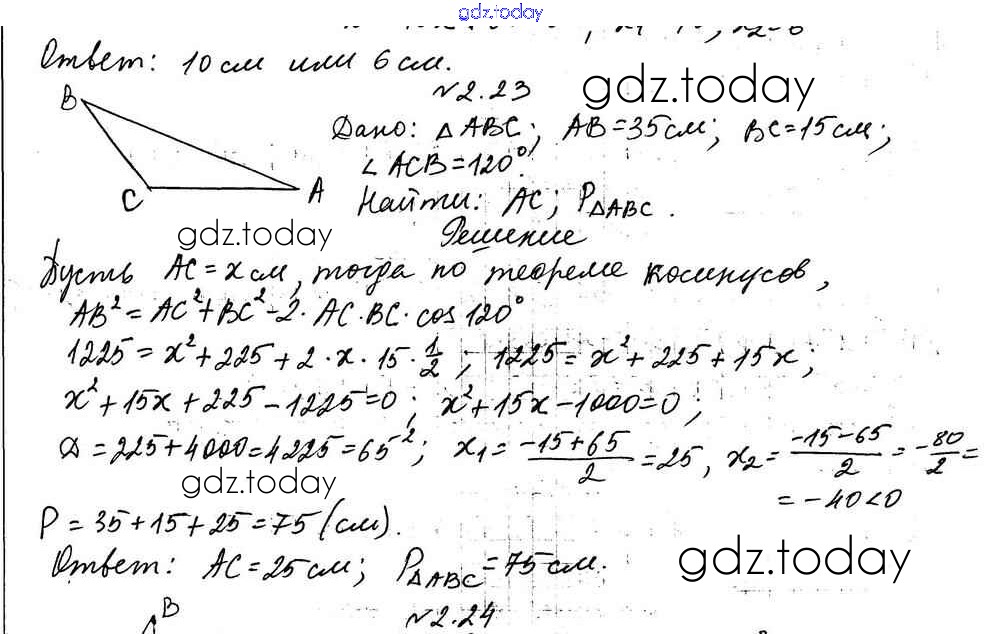 gdz.today
Ответ: 10 см или 6 см.
№2.23
gdz.today
Дано: △ABC; AB=35см; BC=15см;
∠ACB=120°.
Найти: AC; P△ABC.
B
C
A
gdz.today
Решение
Пусть AC=x см, тогда по теореме косинусов,
AB²=AC²+BC²-2·AC·BC·cos120°
1225=x²+225+2·x·15·1/2; 1225=x²+225+15x;
x²+15x+225-1225=0; x²+15x-1000=0;
D=225+4000=4225=65²; x₁=(-15+65)/2=25, x₂=(-15-65)/2=-80/2=
=-40<0
gdz.today
P=35+15+25=75(см).
Ответ: AC=25см; P△ABC=75см.
gdz.today
B
№2.24